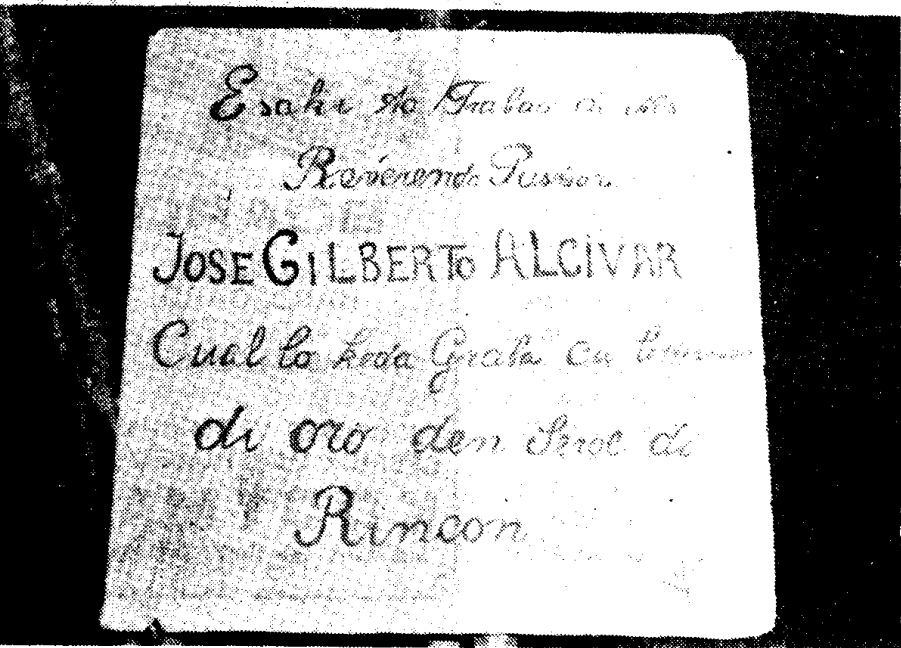 Esaki ta Trabao di nos
Reverendo Pastor
JOSE GILBERTO ALCIVAR
Cual lo keda Graba cu
di oro den Serol di
Rincon